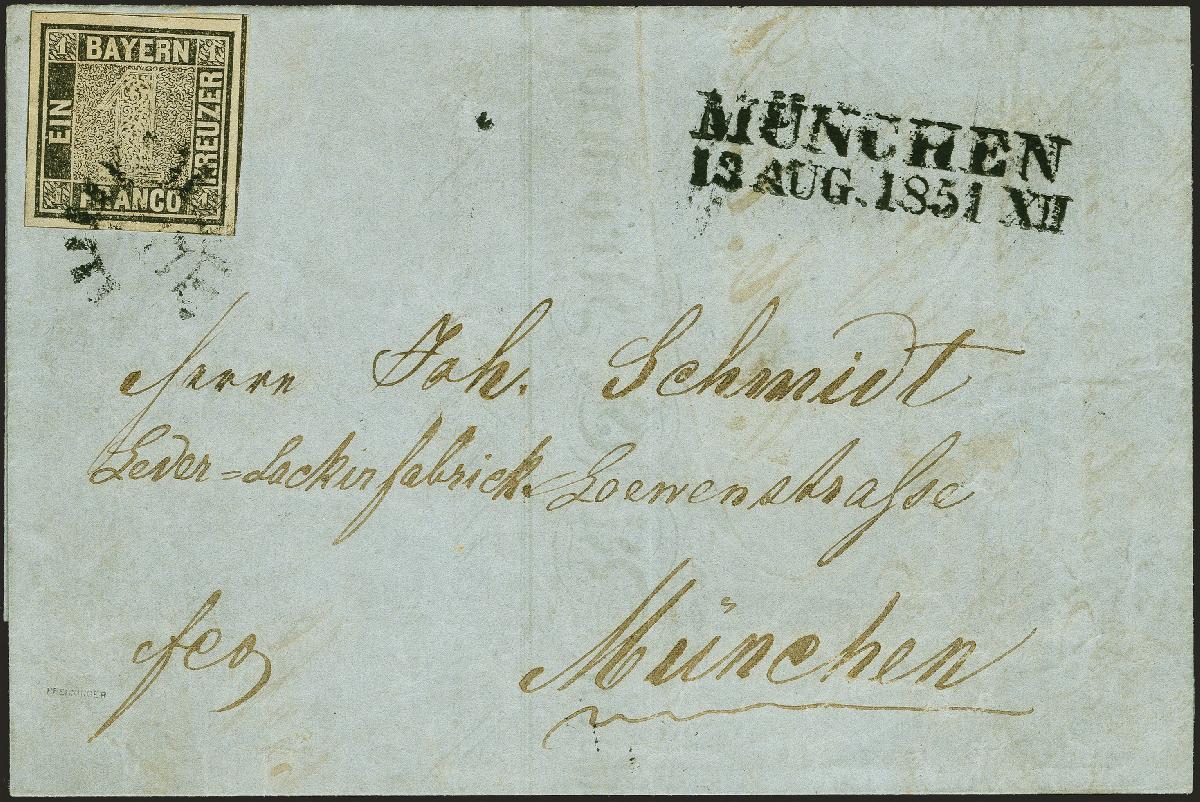 1 BAYERN 1
EIN
KREUZER
1 FRANCO 1
MÜNCHEN
13 AUG. 1851 XII
Herrn Joh. Schmidt
Leder=Lackirfabrick. Loewenstrasse
fco
München